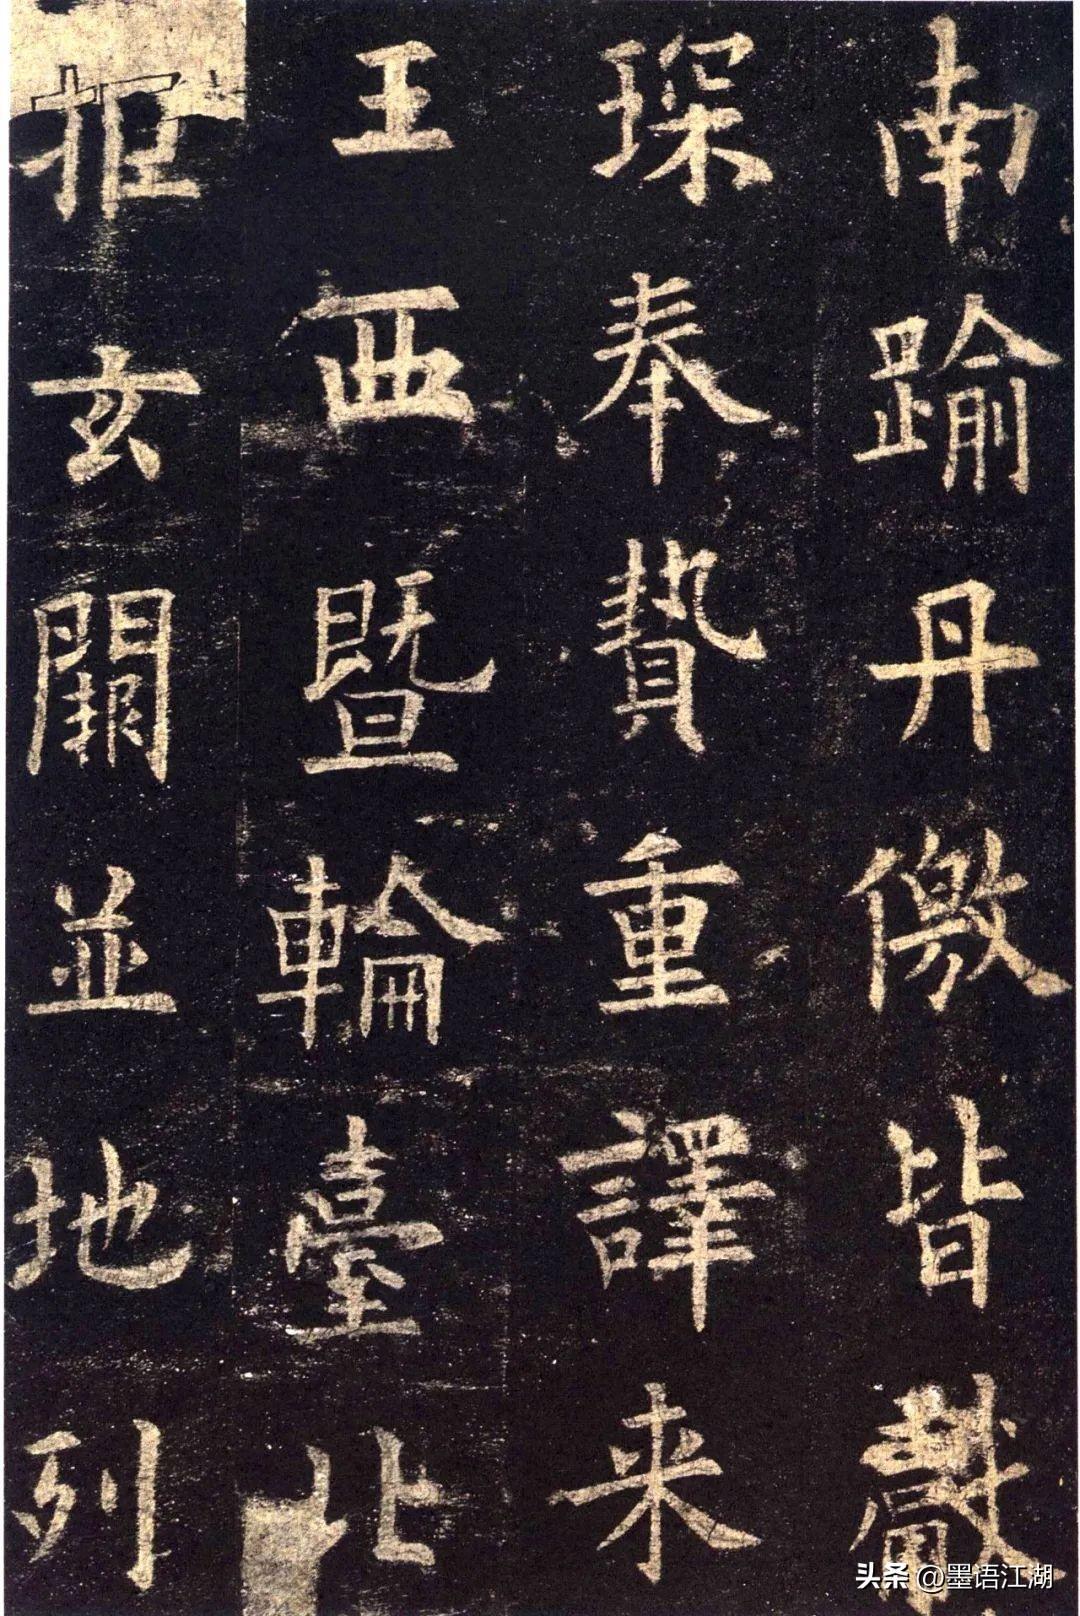 南踰丹徼皆獻
琛奉贄重譯来
王西暨輪臺北
拒玄闕並地列
头条 @墨语江湖